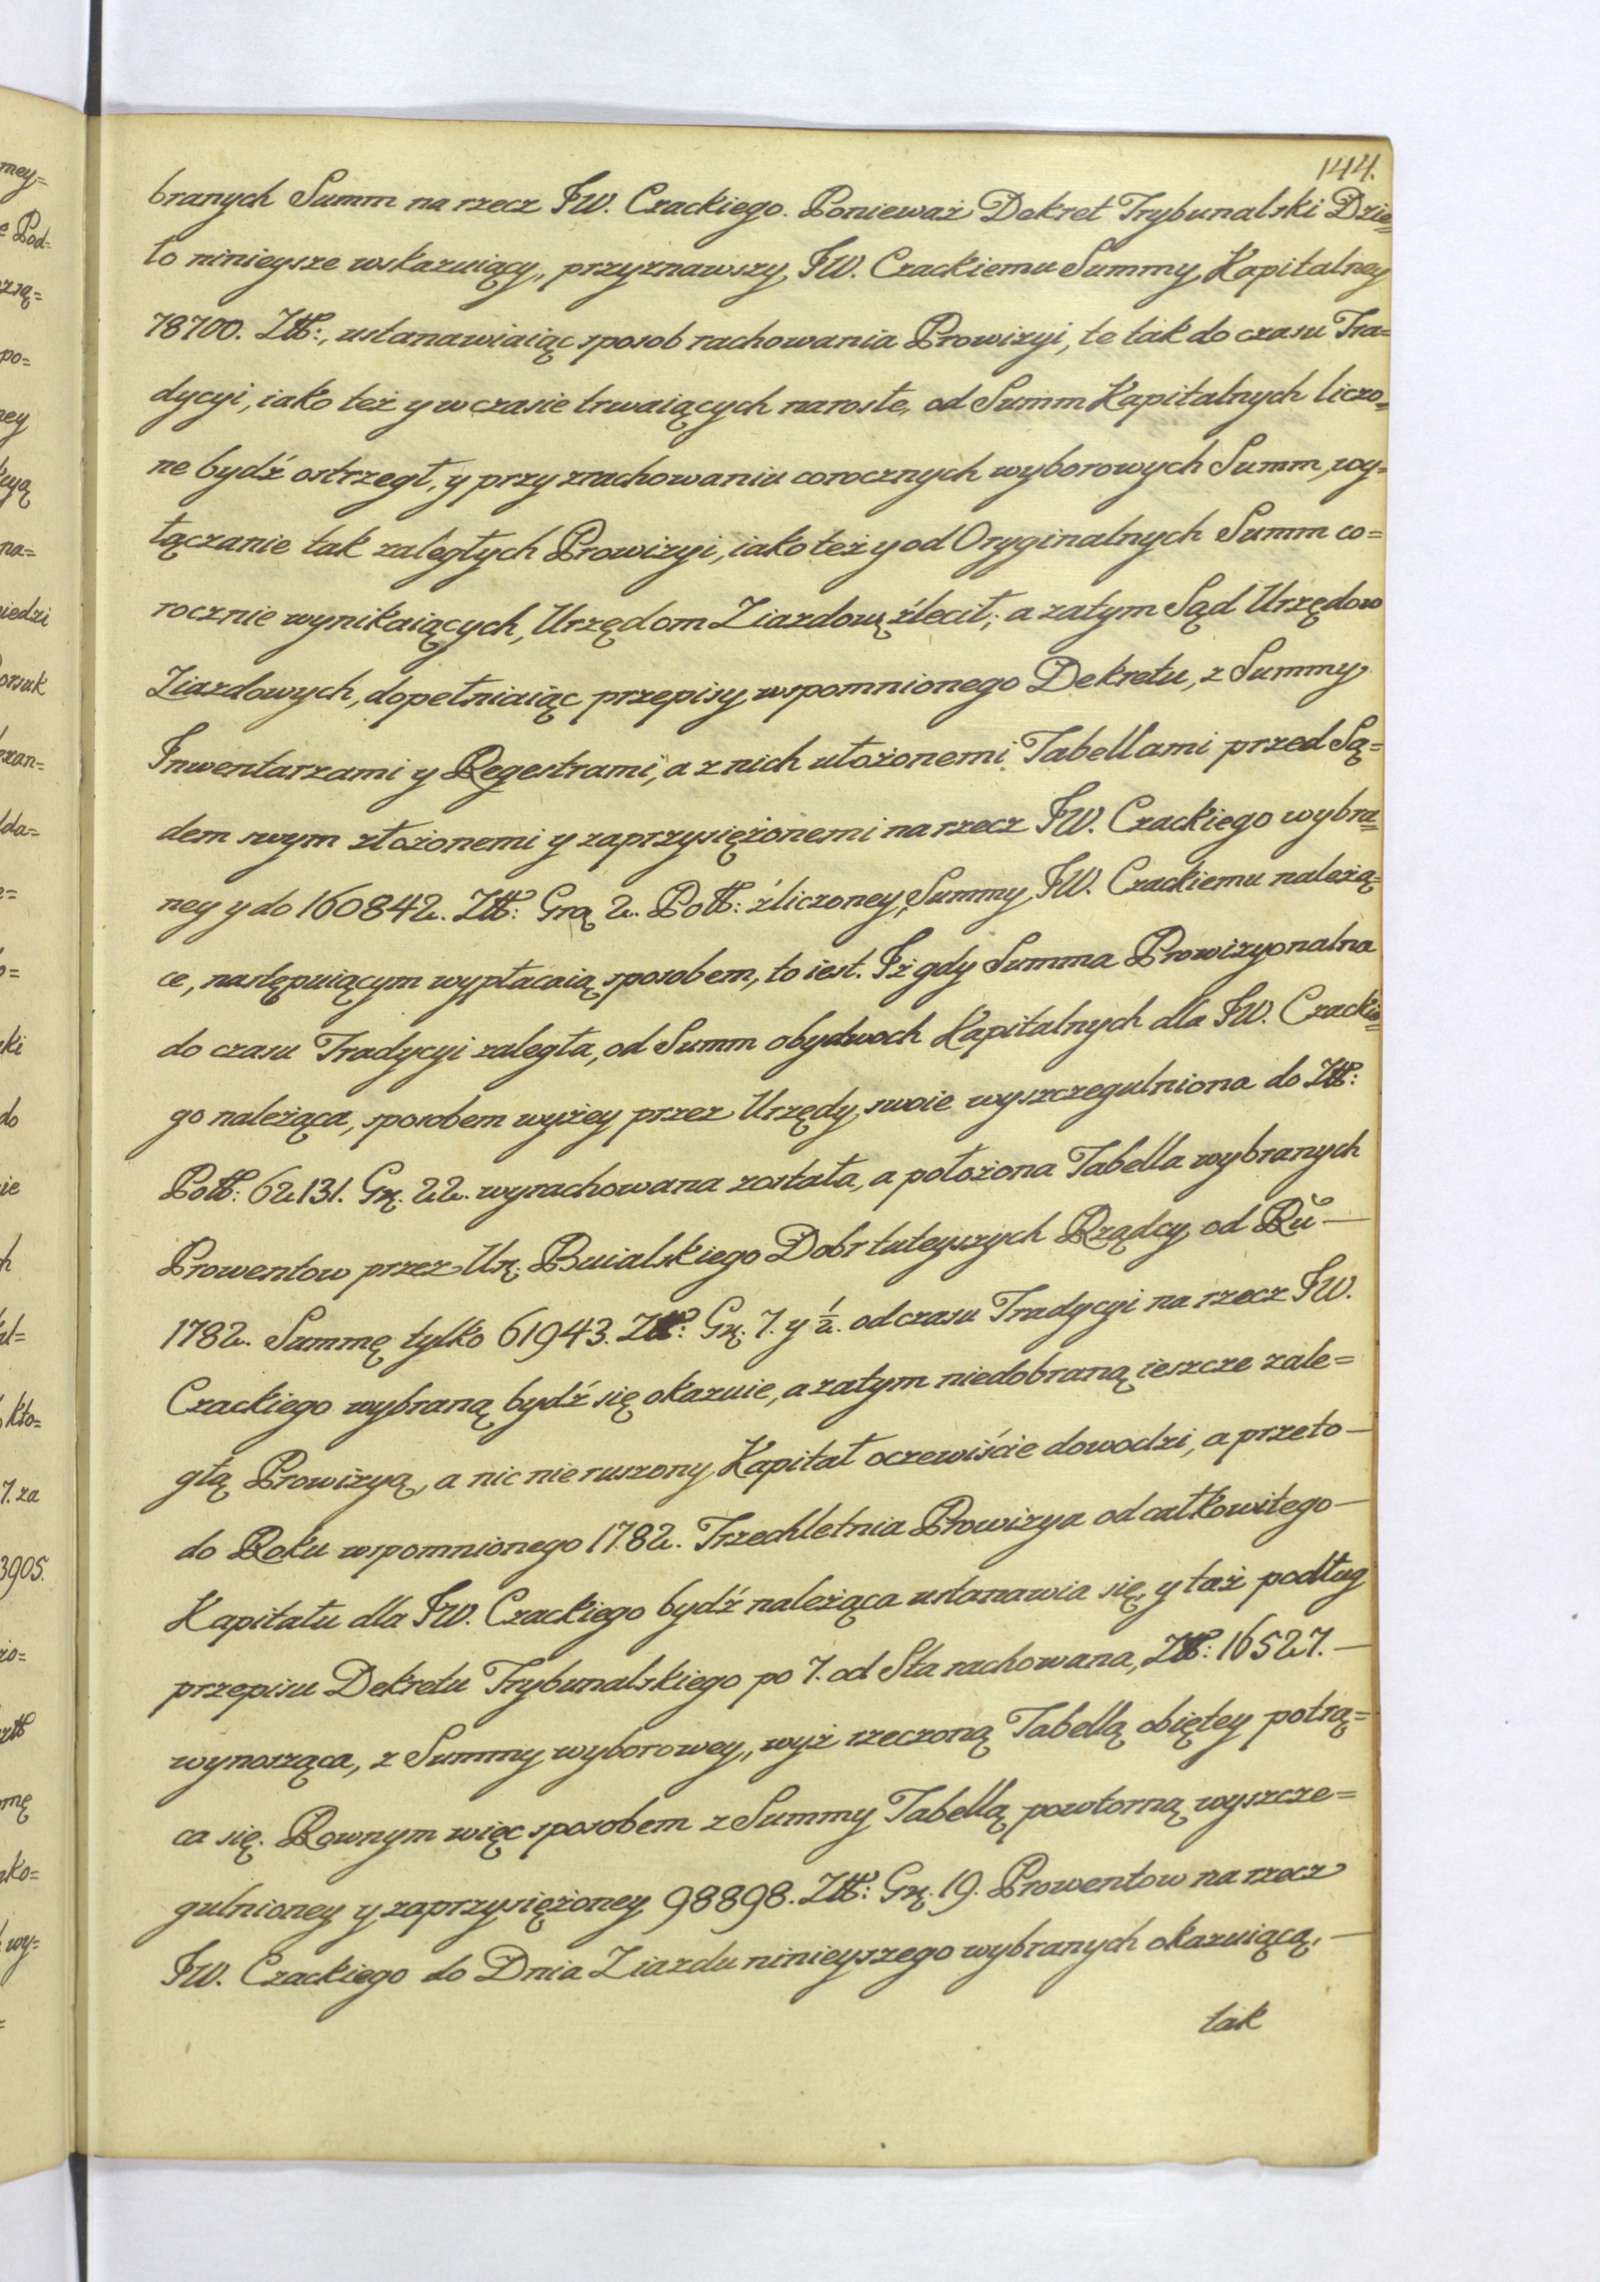 144.
branych Summ na rzecz JW. Czackiego. Ponieważ Dekret Trybunalski Dzie=
ło ninieysze wskazuiący, przyznawszy JW. Czackiemu Summy Kapitalney
78700. Złł:, ustanawiaiąc sposob rachowania Prowizyi, te tak do czasu Tra=
dycyi, iako też y w czasie trwaiących narosłe, od Summ Kapitalnych liczo=
ne bydź ostrzegł, y przy zrachowaniu corocznych wyborowych Summ, wy=
łączanie tak zaległych Prowizyi, iako też y od Oryginalnych Summ co=
rocznie wynikaiących, Urzędom Ziazdow: źlecił; a zatym Sąd Urzędow
Ziazdowych, dopełniaiąc przepisy wspomnionego Dekretu, z Summy
Inwentarzami y Regestrami, a z nich ułożonemi Tabellami przed Są=
dem swym złożonemi y zaprzysiężonemi na rzecz JW. Czackiego wybra=
ney y do 160842. Złł: Gr: 2. Poll: źliczoney, Summy JW. Czackiemu należą=
ce, następuiącym wypłacaią sposobem, to iest. Iż gdy Summa Prowizyonalna
do czasu Tradycyi zaległa, od Summ obydwoch Kapitalnych dla JW. Czackie=
go należąca, sposobem wyżey przez Urzędy swoie wyszczegulniona do Złł:
Poll: 62131. Gr: 22. wyrachowana została, a położona Tabella wybranych
Prowentow przez Ur: Buialskiego Dobr tuteyszych Rządcy od Ru —
1782. Summę tylko 61943. Złł: Gr: 7. y ½. od czasu Tradycyi na rzecz JW.
Czackiego wybraną bydź się okazuie, a zatym niedobraną ieszcze zale=
głą Prowizyą, a nic nie ruszony Kapitał oczewiście dowodzi, a przeto —
do Roku wspomnionego 1782. Trzechletnia Prowizya od całkowitego —
Kapitału dla JW. Czackiego bydź należąca ustanawia się, y taż podług
przepisu Dekretu Trybunalskiego po 7. od Sta rachowana, Złł: 16527. —
wynosząca, z Summy wyborowey, wyż rzeczoną Tabellą obiętey potrą=
ca się. Rownym więc sposobem z Summy Tabellą powtorną wyszcze=
gulnioney y zaprzysiężoney 98898. Złł: Gr: 19. Prowentow na rzecz
JW. Czackiego do Dnia Ziazdu ninieyszego wybranych okazuiącą, —
tak